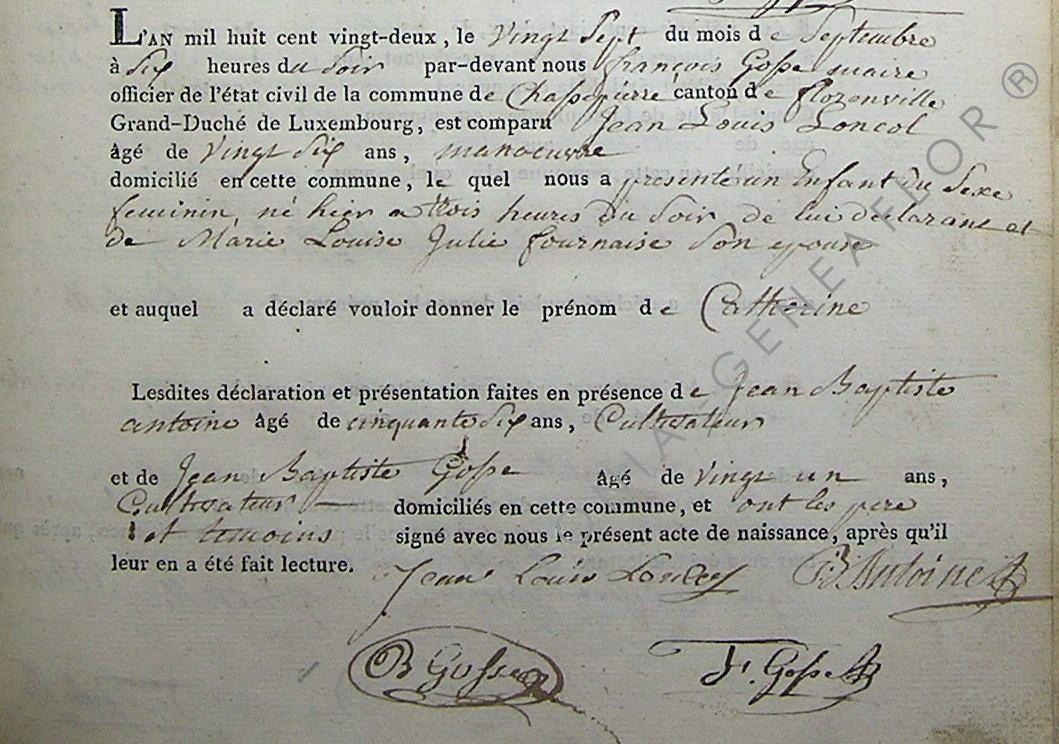 L'AN mil huit cent vingt-deux, le Vingt Sept du mois de Septembre
à Six heures du Soir par-devant nous françois Gosse maire
officier de l'état civil de la commune de Chassepierre canton de florenville
Grand-Duché de Luxembourg, est comparu Jean Louis Loncol
âgé de Vingt Six ans, manoeuvre
domicilié en cette commune, le quel nous a présenté un Enfant du Sexe
feminin, né hier a trois heures du Soir de lui déclarant et
de Marie Louise Julie fournaise Son epouse
et auquel a déclaré vouloir donner le prénom de Catherine
Lesdites déclaration et présentation faites en présence de Jean Baptiste
antoine âgé de cinquante Six ans, Cultivateur
et de Jean Baptiste Gosse âgé de Vingt un ans,
Cultivateur domiciliés en cette commune, et ont les pere
et temoins signé avec nous le présent acte de naissance, après qu'il
leur en a été fait lecture. Jean Louis B Antoine
B Gosse F. Gosse
IMAGENEAFLOR ®